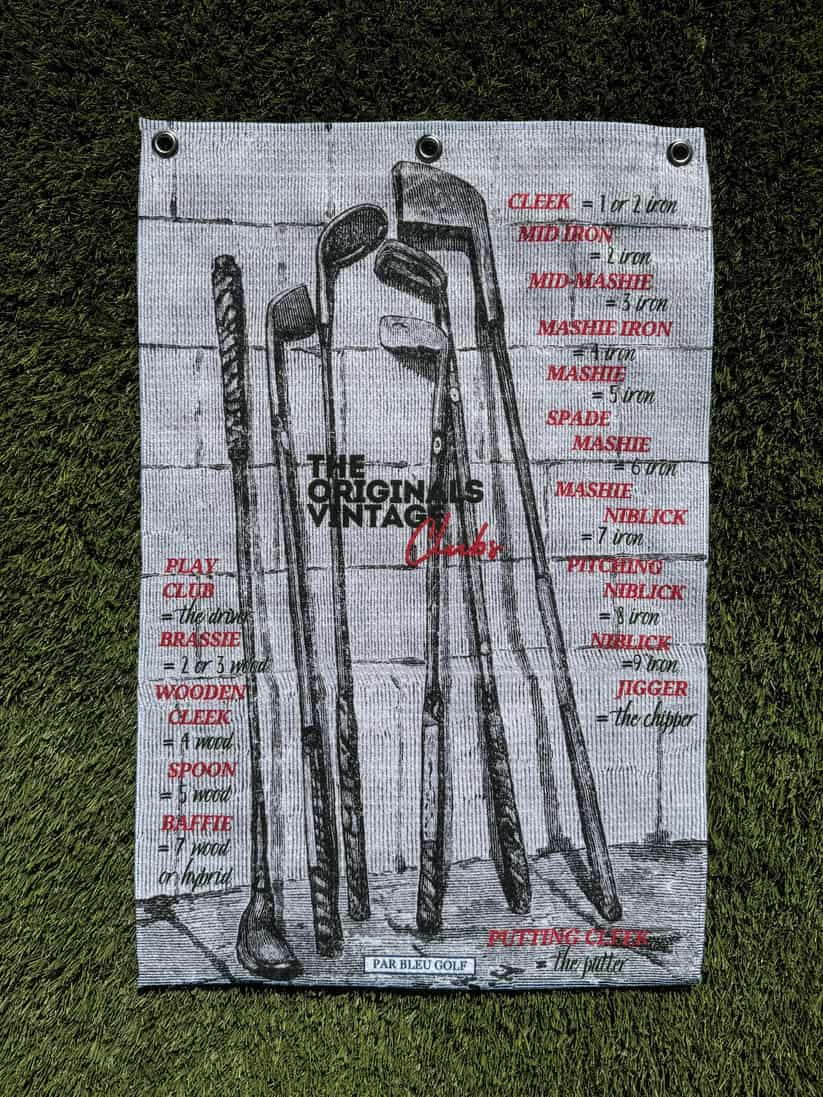 CLEEK = 1 or 2 iron
MID IRON
= 2 iron
MID-MASHIE
= 3 iron
MASHIE IRON
= 4 iron
MASHIE
= 5 iron
SPADE
MASHIE
= 6 iron
MASHIE
NIBLICK
= 7 iron
PITCHING
NIBLICK
= 8 iron
NIBLICK
=9 iron
JIGGER
= the chipper
THE
ORIGINALS
VINTAGE
Clubs
PLAY
CLUB
= the driver
BRASSIE
= 2 or 3 wood
WOODEN
CLEEK
= 4 wood
SPOON
= 5 wood
BAFFIE
= 7 wood
or hybrid
PUTTING CLEEK
= the putter
PAR BLEU GOLF